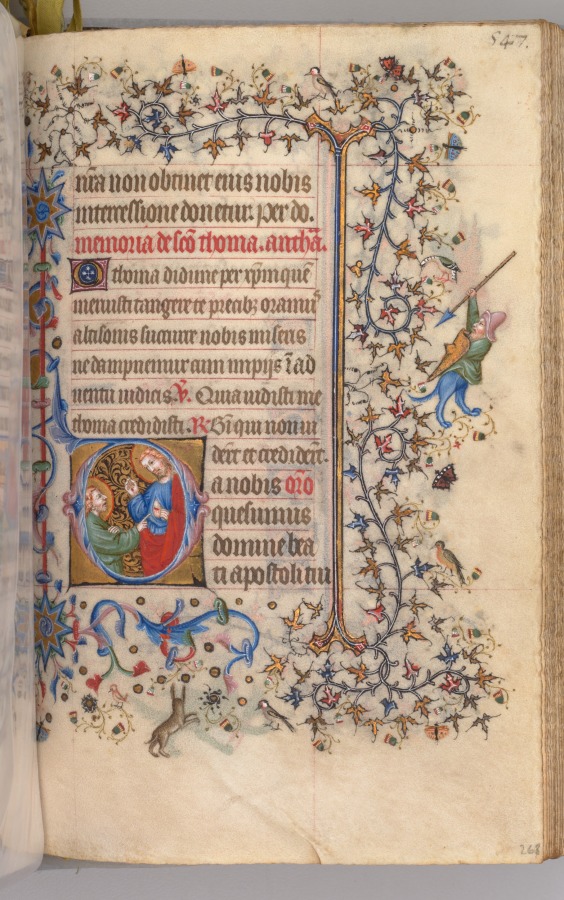 547.
nr̄a non obtinet eius nobis
intercessione donetur. per do.
memoria de sc̄o thoma. antħa.
O thoma didime per xp̄m quē
meruisti tangere te precibꝫ oramus
altisonis succurre nobis miseris
ne dampnemur cum impijs ī ad
uentu iudicis. V̄. Quia uidisti me
thoma credidisti. R̄ Bt̄i qui non ui
derūt et crediderūt.
a nobis or̄o
quesumus
domine bea
ti apostoli tui
268